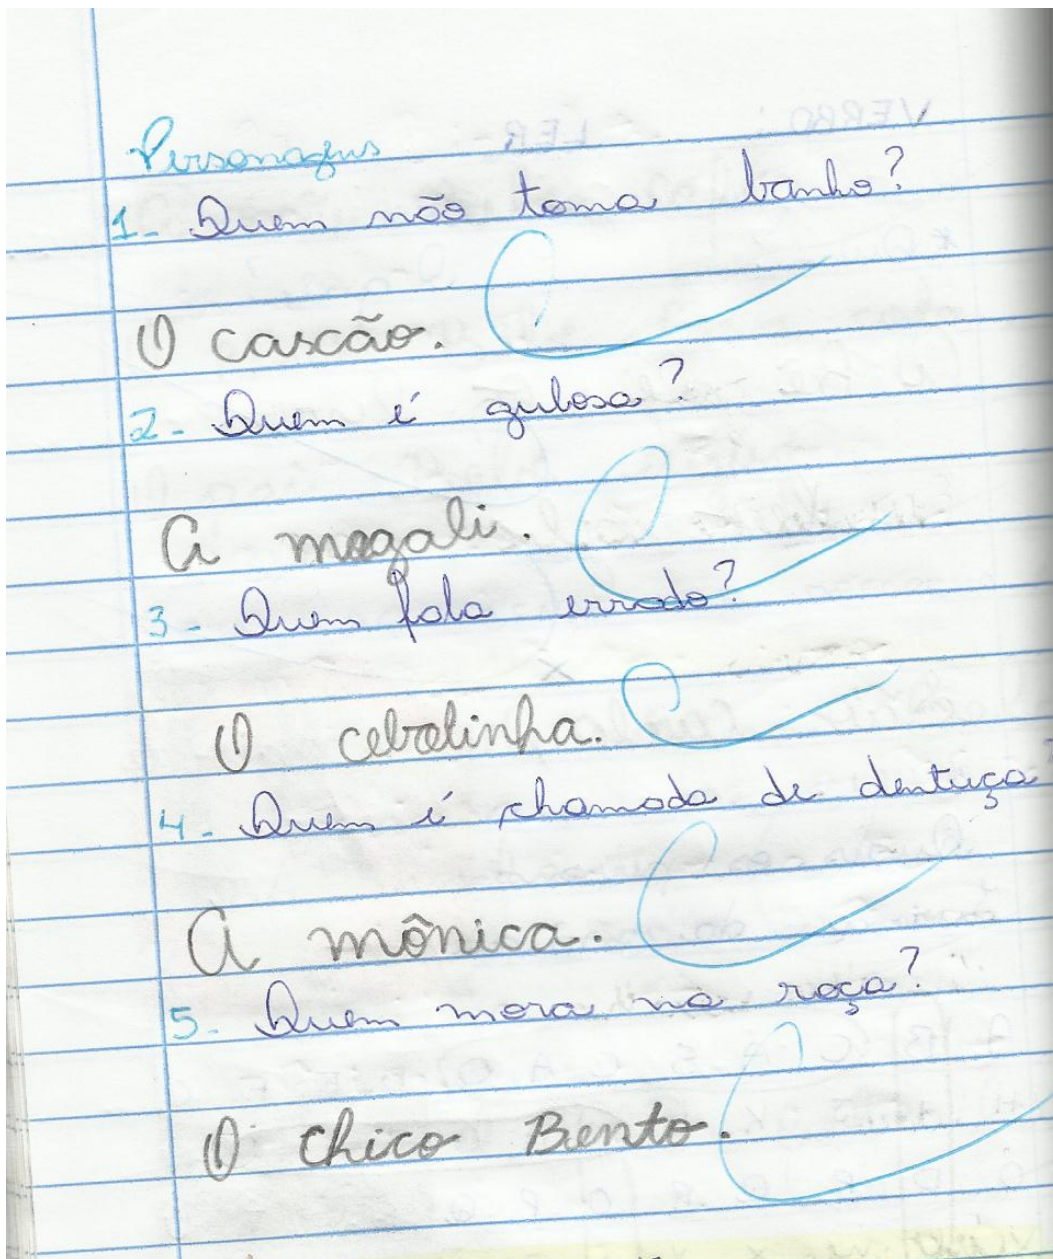 Personagens
1- Quem não toma banho?
O cascão.
2- Quem é gulosa?
A magali.
3- Quem fala errado?
O cebolinha.
4- Quem é chamada de dentuça?
A mônica.
5- Quem mora na roça?
O Chico Bento.